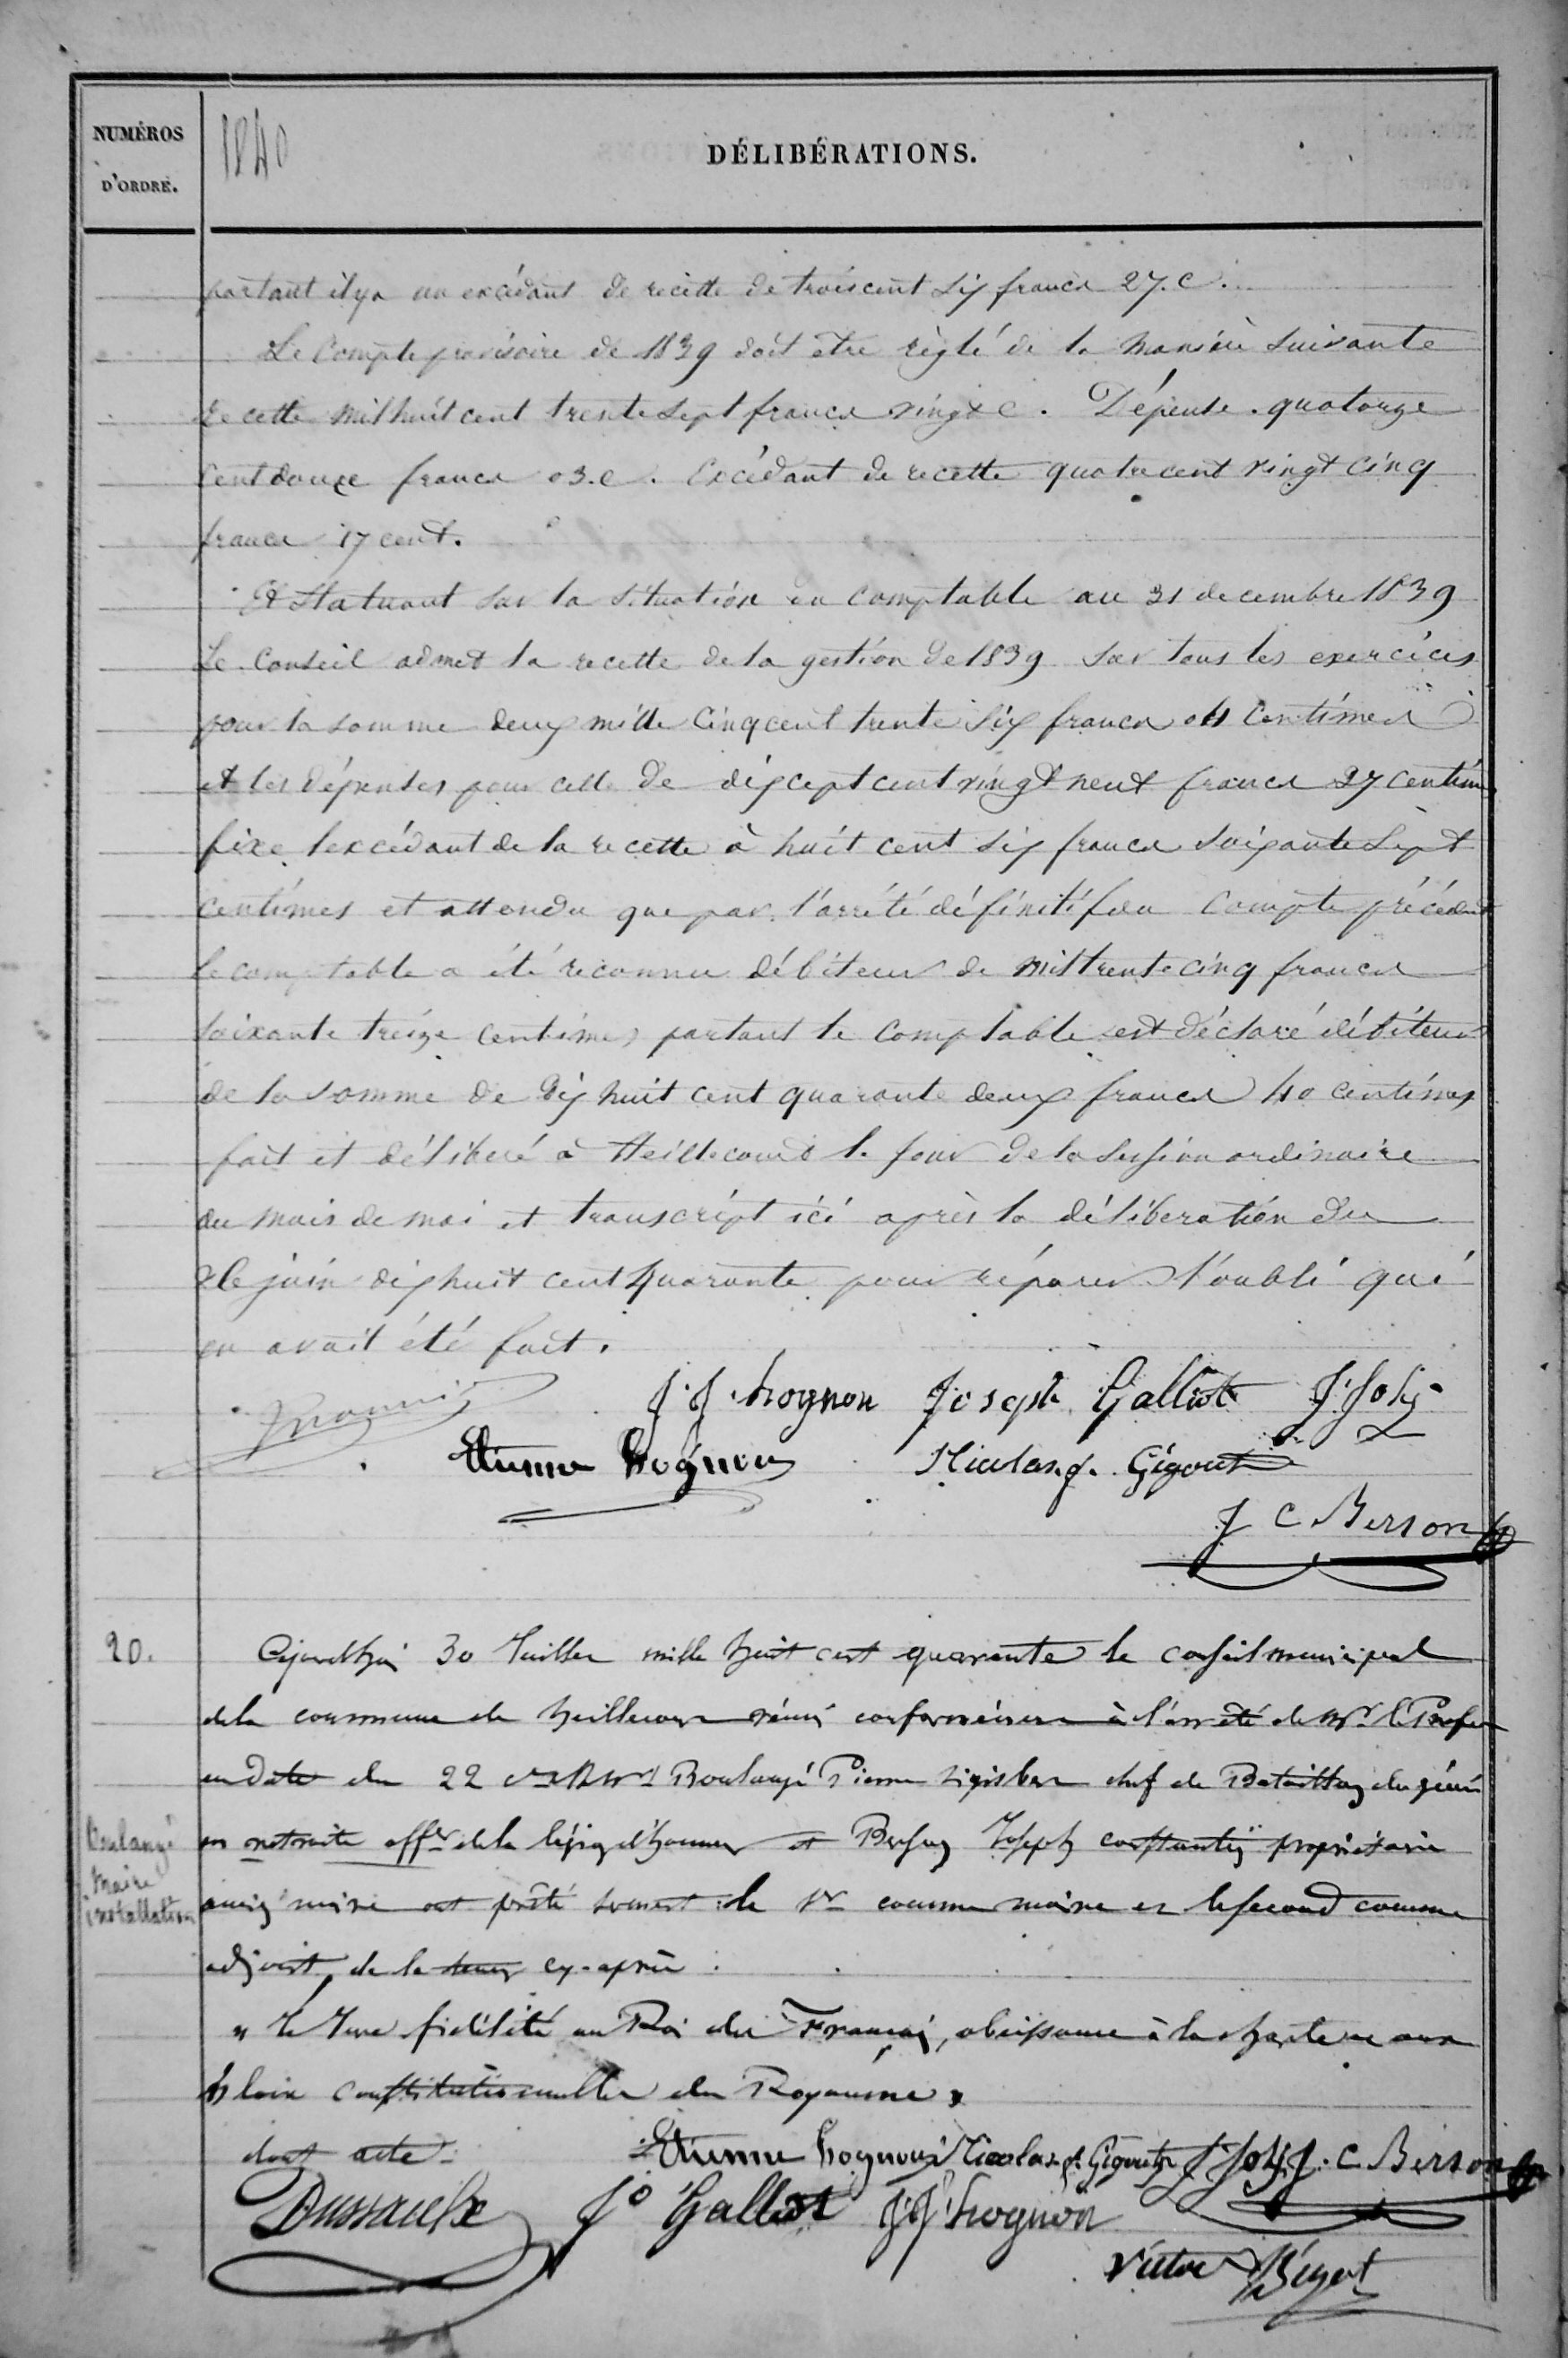 NUMÉROS
D'ORDRE.
1840
DÉLIBÉRATIONS.
partant il y a un excédant de recette de trois cent six francs 27. c.
Le Compte provisoire de 1839 doit être règlé de la manière suivante
Recette mil huit cent trente sept francs vingt c. Dépense. quatorze
cent douze francs 03. c. Excédant de recette quatre cent vingt cinq
francs 17 cent.
Et Statuant sur la situation du comptable au 31 decembre 1839
Le Conseil admet la recette de la gestion de 1839 sur tous les exercices
pour la somme deux mille cinq cent trente six francs 04 Centimes
et les dépenses pour celle de dix cept cent vingt neuf francs 27 centimes
fixe l'excédant de la recette à huit cent six francs soixante Sept
centimes et attendu que par l'arrété définitif du Compte précédent
le comptable a été reconnu débiteur de mil trente cinq francs
soixante treize centimes, partant le Comptable est déclaré débiteur
de la somme de dix huit cent quarante deux francs 40 centimes
fait et délibéré à Heillecourt le jour de la Session ordinaire
du mois de mai et transcript ici après la délibération du
juin dix huit cent quarante pour réparer l'oubli qui
en avait été fait.
J. J. hognon Joseph Galliot J. Joly
Etienne hognon Nicolas. J. Gigout
J C Berson
20.
Cejourd'hui 30 Juillet mille huit cent quarante le conseil municipal
de la commune de heillecourt réuni conformément à l'arrêté de Mr. le Prefet
en date du 22 Boulangé Pierre Sigisber chef de Bataillon du génie
en retraite offer. de la légion d'honneur et Berson Joseph constantin propriétaire
Boulangé
Maire
installation
ancien maire ont prêté serment le 1er comme maire et le second comme
adjoint, de la teneur cy-après :
" Je Jure fidélité au Roi des Français, obéissance à la charte et aux
" loix constitutionnelles du Royaume "
dont acte.
Etienne hognon Nicolas J. Gigout J. Joly J. C Berson
Dussaulx Jo Galliot J. J. hognon
Victor Bégot